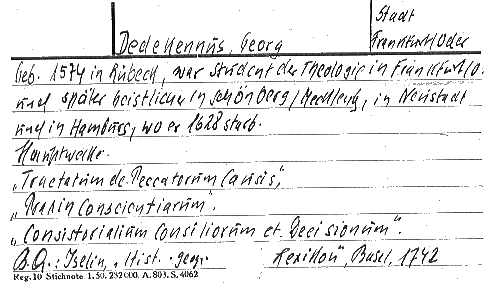 Stadt
Dedekennus, Georg
Frankfurt/Oder
Geb. 1574 in Lübeck, war Student der Theologie in Frankfurt/O.
und später Geistlicher in Schönberg/Mecklenb., in Neustadt
und in Hamburg, wo er 1628 starb.
Hauptwerke.
„Tractatum de Peccatorum Causis",
„ Conscientiarum".
„Consistorialium Consiliorum et Decisionum".
B.Q.: Iselin, „Hist.-geogr. Lexikon", Basel, 1742
Reg. 10 Stichnote 1. 50. 232000. A. 803. S. 4062